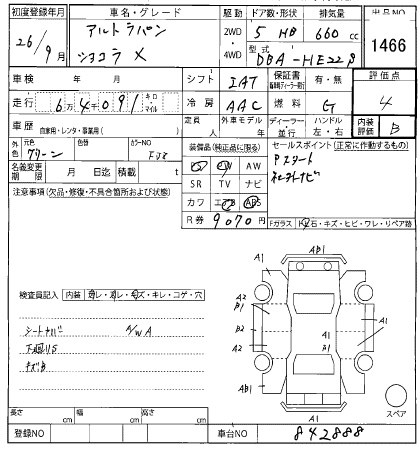 初度登録年月 車名・グレード 駆動 ドア数・形状 排気量 出品NO
26/9月 アルトラパン 2WD・4WD 5 HB 660cc 1466
ショコラ X 型式 DBA-HE22S
車検 年 月 シフト IAT 保証書 有・無 評価点
走行 6万4091 キロ・マイル 冷房 AAC 燃料 G 4
車歴 自家用・レンタ・事業用( ) 定員 人 外車モデル 年 ディーラー・並行 ハンドル 左・右 内装評価 B
外色 元色 グリーン 色替 カラーNO
名義変更期限 月 日迄 積載 t
装備品(純正品に限る)
PS PW AW
SR TV ナビ
カワ エアB ABS
R券 9070円
セールスポイント(正常に作動するもの)
Pスタート
注意事項(欠品・修復・不具合箇所および状態)
Fガラス 石・キズ・ヒビ・ワレ・リペア跡
検査員記入 内装 キレ・コゲ・穴
キズB
AB1
A1
A2
B1
B2
A2
AB1
A1
B1
A1
A1
A1
スペア
長さ cm 幅 cm 高さ cm
登録NO 車台NO 842888